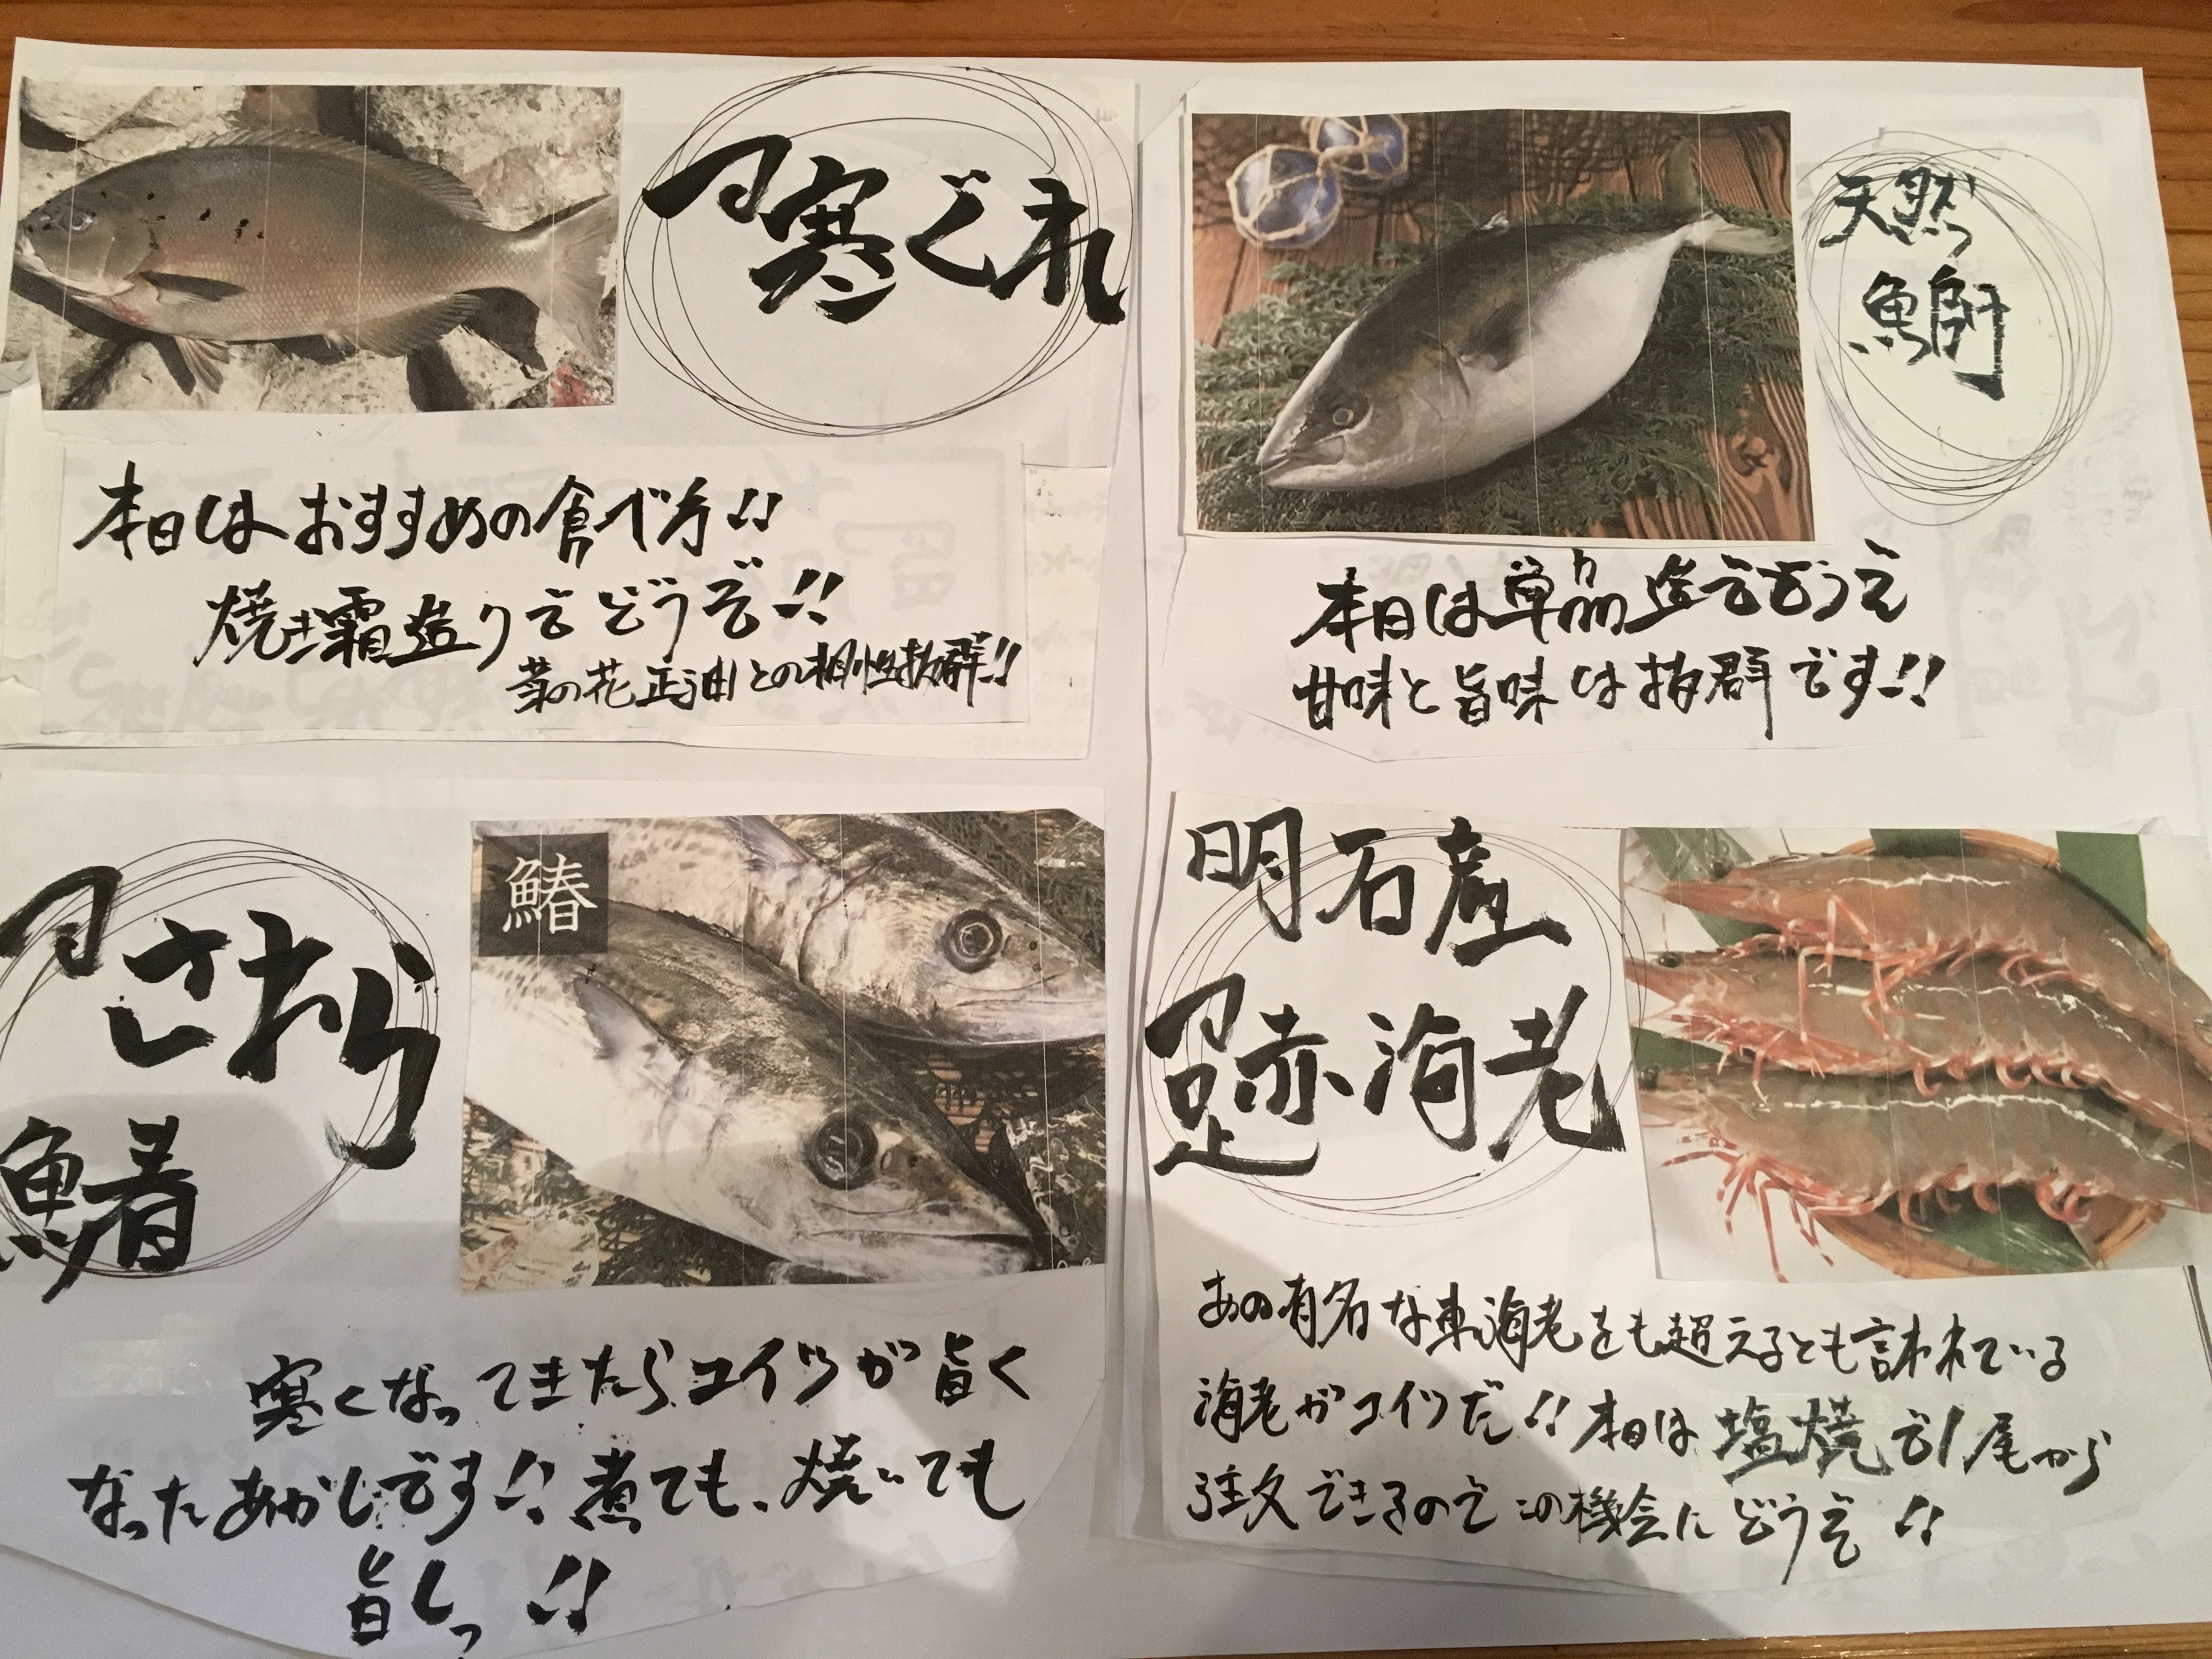 寒ぐれ
本日はおすすめの食べ方!!
焼き霜造りでどうぞ!!
菜の花正油との相性抜群!!
天然
鰤
本日は単品
甘味と旨味は抜群です!!
さわら
鰆
鰆
寒くなってきたらコイツが旨く
なったあかしです!! 煮ても、焼いても
旨しっ!!
明石産
足赤海老
あの有名な車海老をも超えるとも言われている
海老がコイツだ!! 本日は塩焼で1尾から
注文できるのでこの機会にどうぞ!!